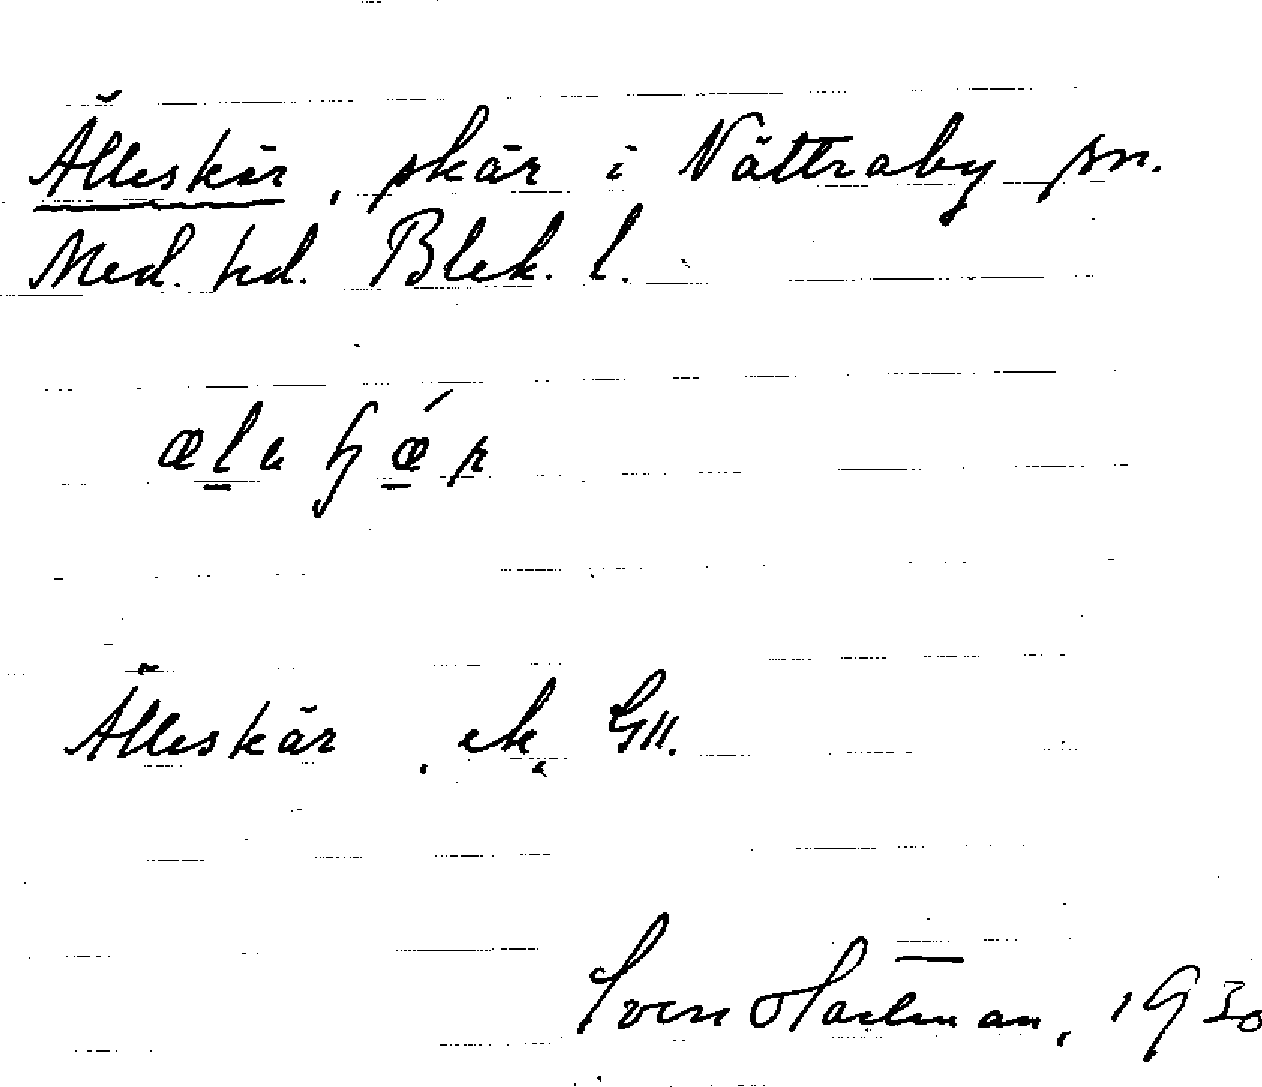 Älleskär, skär i Nättraby sn.
Med. hd. Blek. l.
Älleskär. ek.
Sven Hartman, 1930